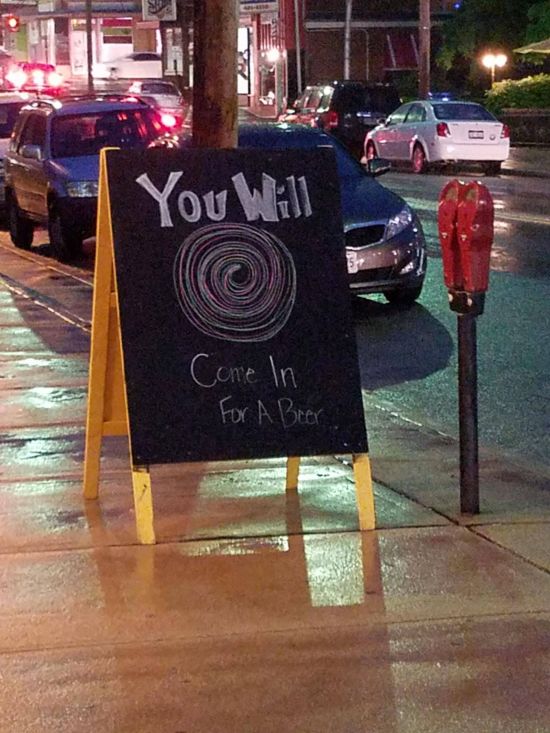 You Will
Come In
For A Beer...